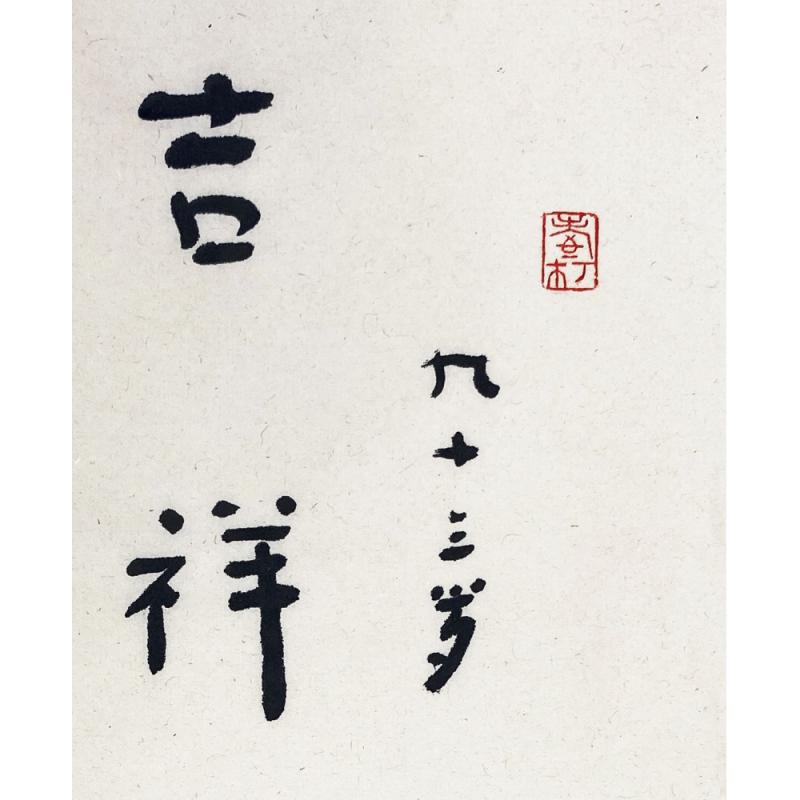 吉祥
九十三岁